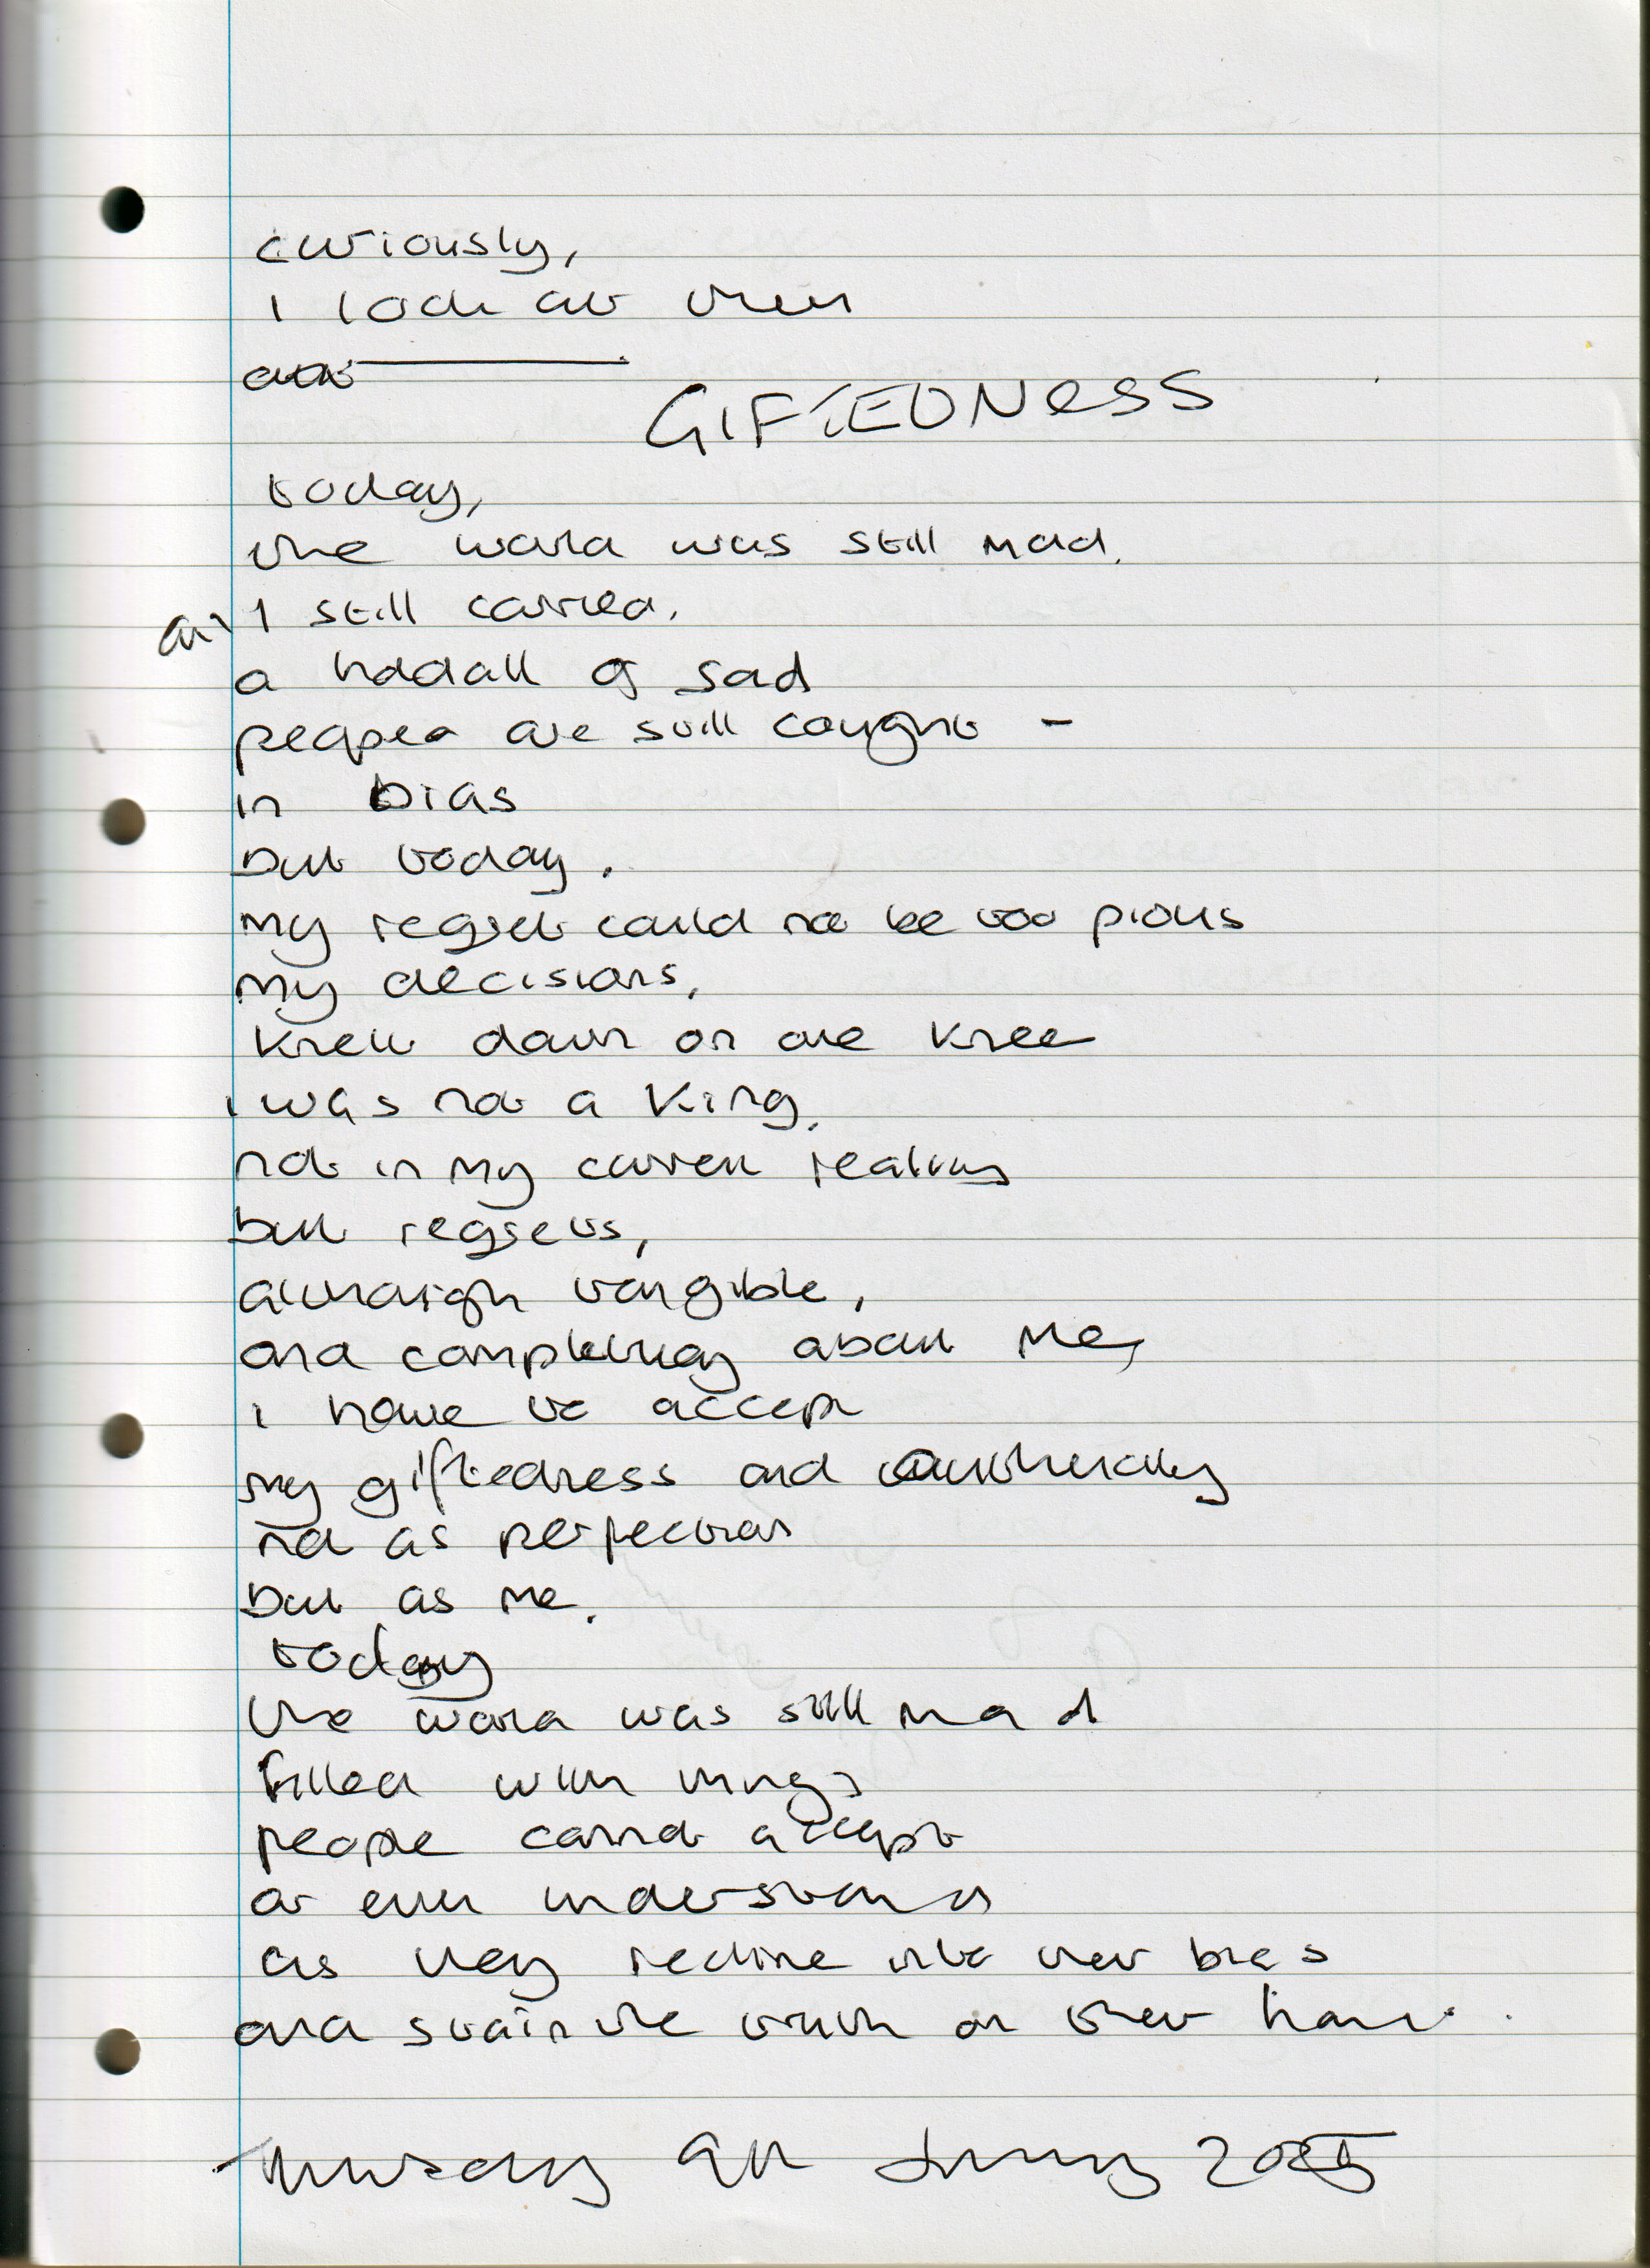 curiously,
I look at them
GIFTEDNESS
today,
the world was still mad.
I still carried.
a holdall of sad
people are still caught -
in bias
but today.
my regret could not be too pious
my decisions,
knelt down on one knee
i was not a king,
not in my current reality
but regrets,
although tangible,
and completely about me,
i have to accept
my giftedness and authenticity
not as perfection
but as me.
today
the world was still mad
filled with things
people cannot accept
or even understand
as they recline into their bias
and stain the truth on their hands.
Thursday 9th January 2025